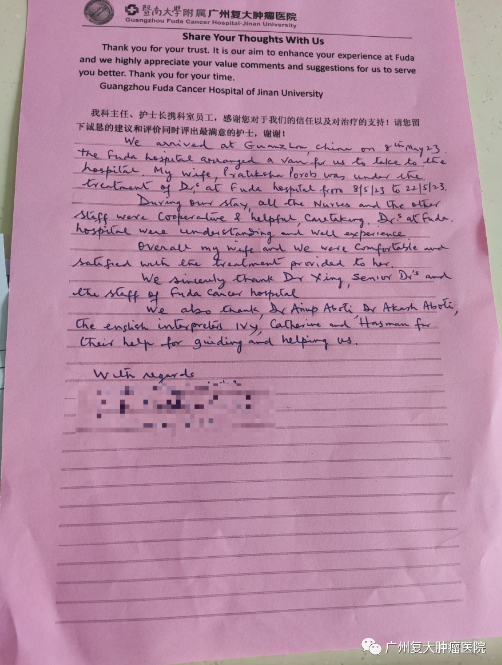 暨南大學附属广州复大肿瘤医院
Guangzhou Fuda Cancer Hospital-Jinan University
Share Your Thoughts With Us
Thank you for your trust. It is our aim to enhance your experience at Fuda
and we highly appreciate your value comments and suggestions for us to serve
you better. Thank you for your time.
Guangzhou Fuda Cancer Hospital of Jinan University
我科主任、护士长携科室员工，感谢您对于我们的信任以及对治疗的支持！请您留
下诚恳的建议和评价同时评出最满意的护士，谢谢！
We arrived at China on 8th May 23.
the Fuda hospital arranged a van for us to take to the
hospital. My wife, Pratiksha Porob was under the
treatment of Dr,s at Fuda hospital from 8/5/23 to 22/5/23.
During our stay, all the Nurses and the other
staff were Cooperative & helpful, Caretaking. Dr's at Fuda.
hospital were understanding and well experience.
Overall my wife and we were comfortable and
satisfied with the treatment provided to her.
We sincerely thank Dr Xing, Senior Dr's and
the staff of Fuda Cancer hospital
We also thank, Dr Anup Aboti, Dr Akash Aboti,
the english interpreters IVY, Catherine and Hasman for
their help for guiding and helping us.
With regards
广州复大肿瘤医院